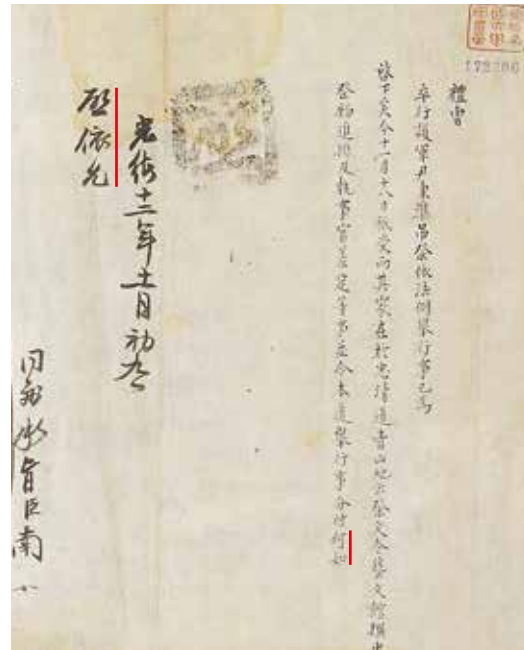 172206
禮曹
卒行護軍尹東 吊祭依法例擧行事已爲
啓下矣今十一月十八日祗受而其家在於忠淸道靑山地云祭文令藝文館撰出
祭物進排及執事官差定等事並令本道擧行事分付何如
光緖十二年十一月初
啓依允
同副承旨臣南